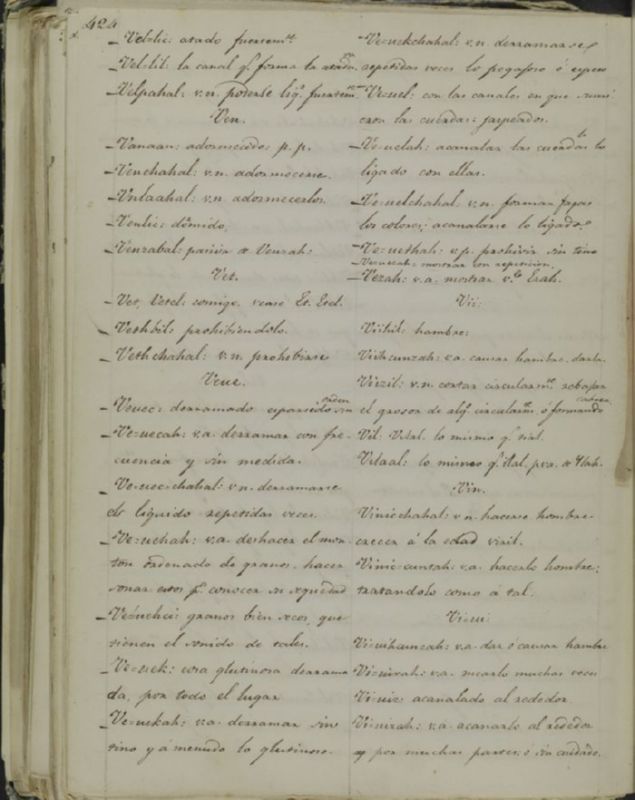 424
Vetzlic: atado fuertemte
Vetzlil: la canal q. forma la atadn.
Vetpahal: v.n. ponerse ligo. fuertemte
Ven.
Vanaan: adormecidos p. p.
Venchahal: v.n. adormecerse.
Venlaahal: v.n. adormecerlos.
Venlic: dormido,
Venzabal: pasiva de Venzah:
Vet.
Vet, Vetel: comigo. vease Et. Etel.
Vethbil: prohibiendolo.
Vethchahal: v.n. prohibirse
Veue.
Veuec: derramado esparcido sin
orden
Ve=uecah: v.a. derramar con fre-
cuencia y sin medida.
Ve=uec-chahal: v.n. derramarse
el liquido repetidas veces.
Ve=uchah: v.a. deshacer el mon-
ton ordenado de granos. hacer
sonar estos pa. conocer su sequedad
granos bien secos, que
tienen el sonido de tales.
Ve=uek: cosa glutinosa derrama
da, por todo el lugar.
Ve=uekah: v.a. derramar sin
tino y á menudo lo glutinoso.
Ve=uekchahal: v.n. derramarse
repetidas veces lo pegajoso ó espeso
Ve=uel: con las canales en que
las cuerdas: jaspeados.
Ve=uelah: acanalar las cuerdas lo
ligado con ellas.
Ve=uelchahal v.n. formar fajas
los colores; acanalarse lo ligado.
Ve=uethah: v.p. prohivir sin tino
mostrar con repeticion.
Vezah: v.a. mostrar v.e Ezah.
Vii:
Viitul: hambre:
Viihunzah: v.a. causar hambre. darla.
Viizil: v.n. cortar circularmte. rebajar
el grosor de algo. circularmte ó formando
Vil: Vilal. lo mismo q. ilal.
Vilaal: lo mismo q. ilal. pva. de Ylah.
Vin.
Vinicchahal: v.n. hacerse hombre.
crecer á la edad viril.
Vinic=cunzah: v.a. hacerlo hombre;
tratandolo como á tal.
Vi=ui
Vi=uihunzah: v.a. dar ó causar hambre
Vi=uixah: v.a. mearlo muchas veces
Vi=uic: acanalado al rededor.
Vi=uizah: v.a. acanarlo al rededor
y por muchas partes. ó sin cuidado.